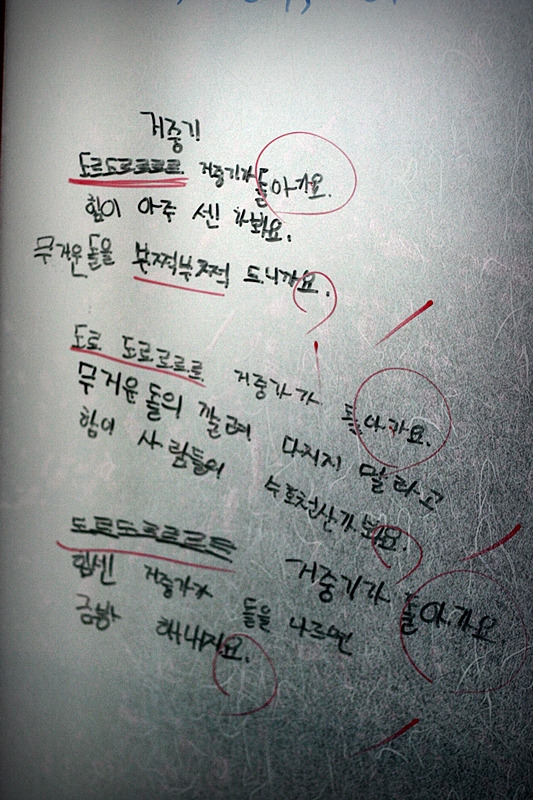 거중기
도르도르르르르 거중기가 돌아가요.
힘이 아주 센 가봐요.
무거운 돌을 부쩍부쩍 드니까요.
도로 도르르르르 거중기가 돌아가요.
무거운 돌의 깔려 다치지 말라고
힘이 사람들의 수호천사가 봐요.
도르도르르르르 거중기가 돌아가요
힘센 거중기가 돌을 나르면
금방 해내지요.